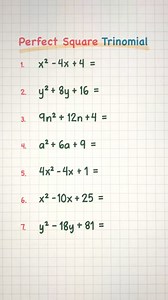 Perfect Square Trinomial
1. x² - 4x + 4 =
2. y² + 8y + 16 =
3. 9n² + 12n + 4 =
4. a² + 6a + 9 =
5. 4x² - 4x + 1 =
6. x² - 10x + 25 =
7. y² - 18y + 81 =